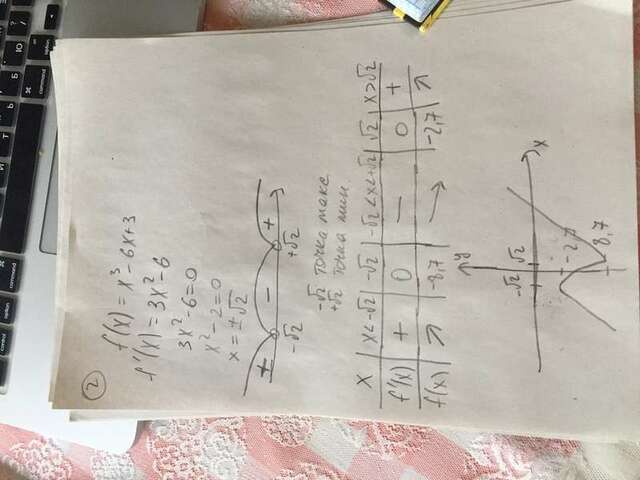 control option command
command option
Б Ю
2
f(x) = x³-6x+3
f'(x) = 3x²-6
3x²-6=0
x²-2=0
x=±√2
+ - +
-√2 +√2
-√2 точка макс
+√2 точка мин.
x x<-√2 -√2 -√2<x<+√2 √2 x>√2
f'(x) + 0 — 0 +
f(x) ↗ -8,7 ↘ -2,7 ↗
y
-√2 √2
x
-2,7
-8,7